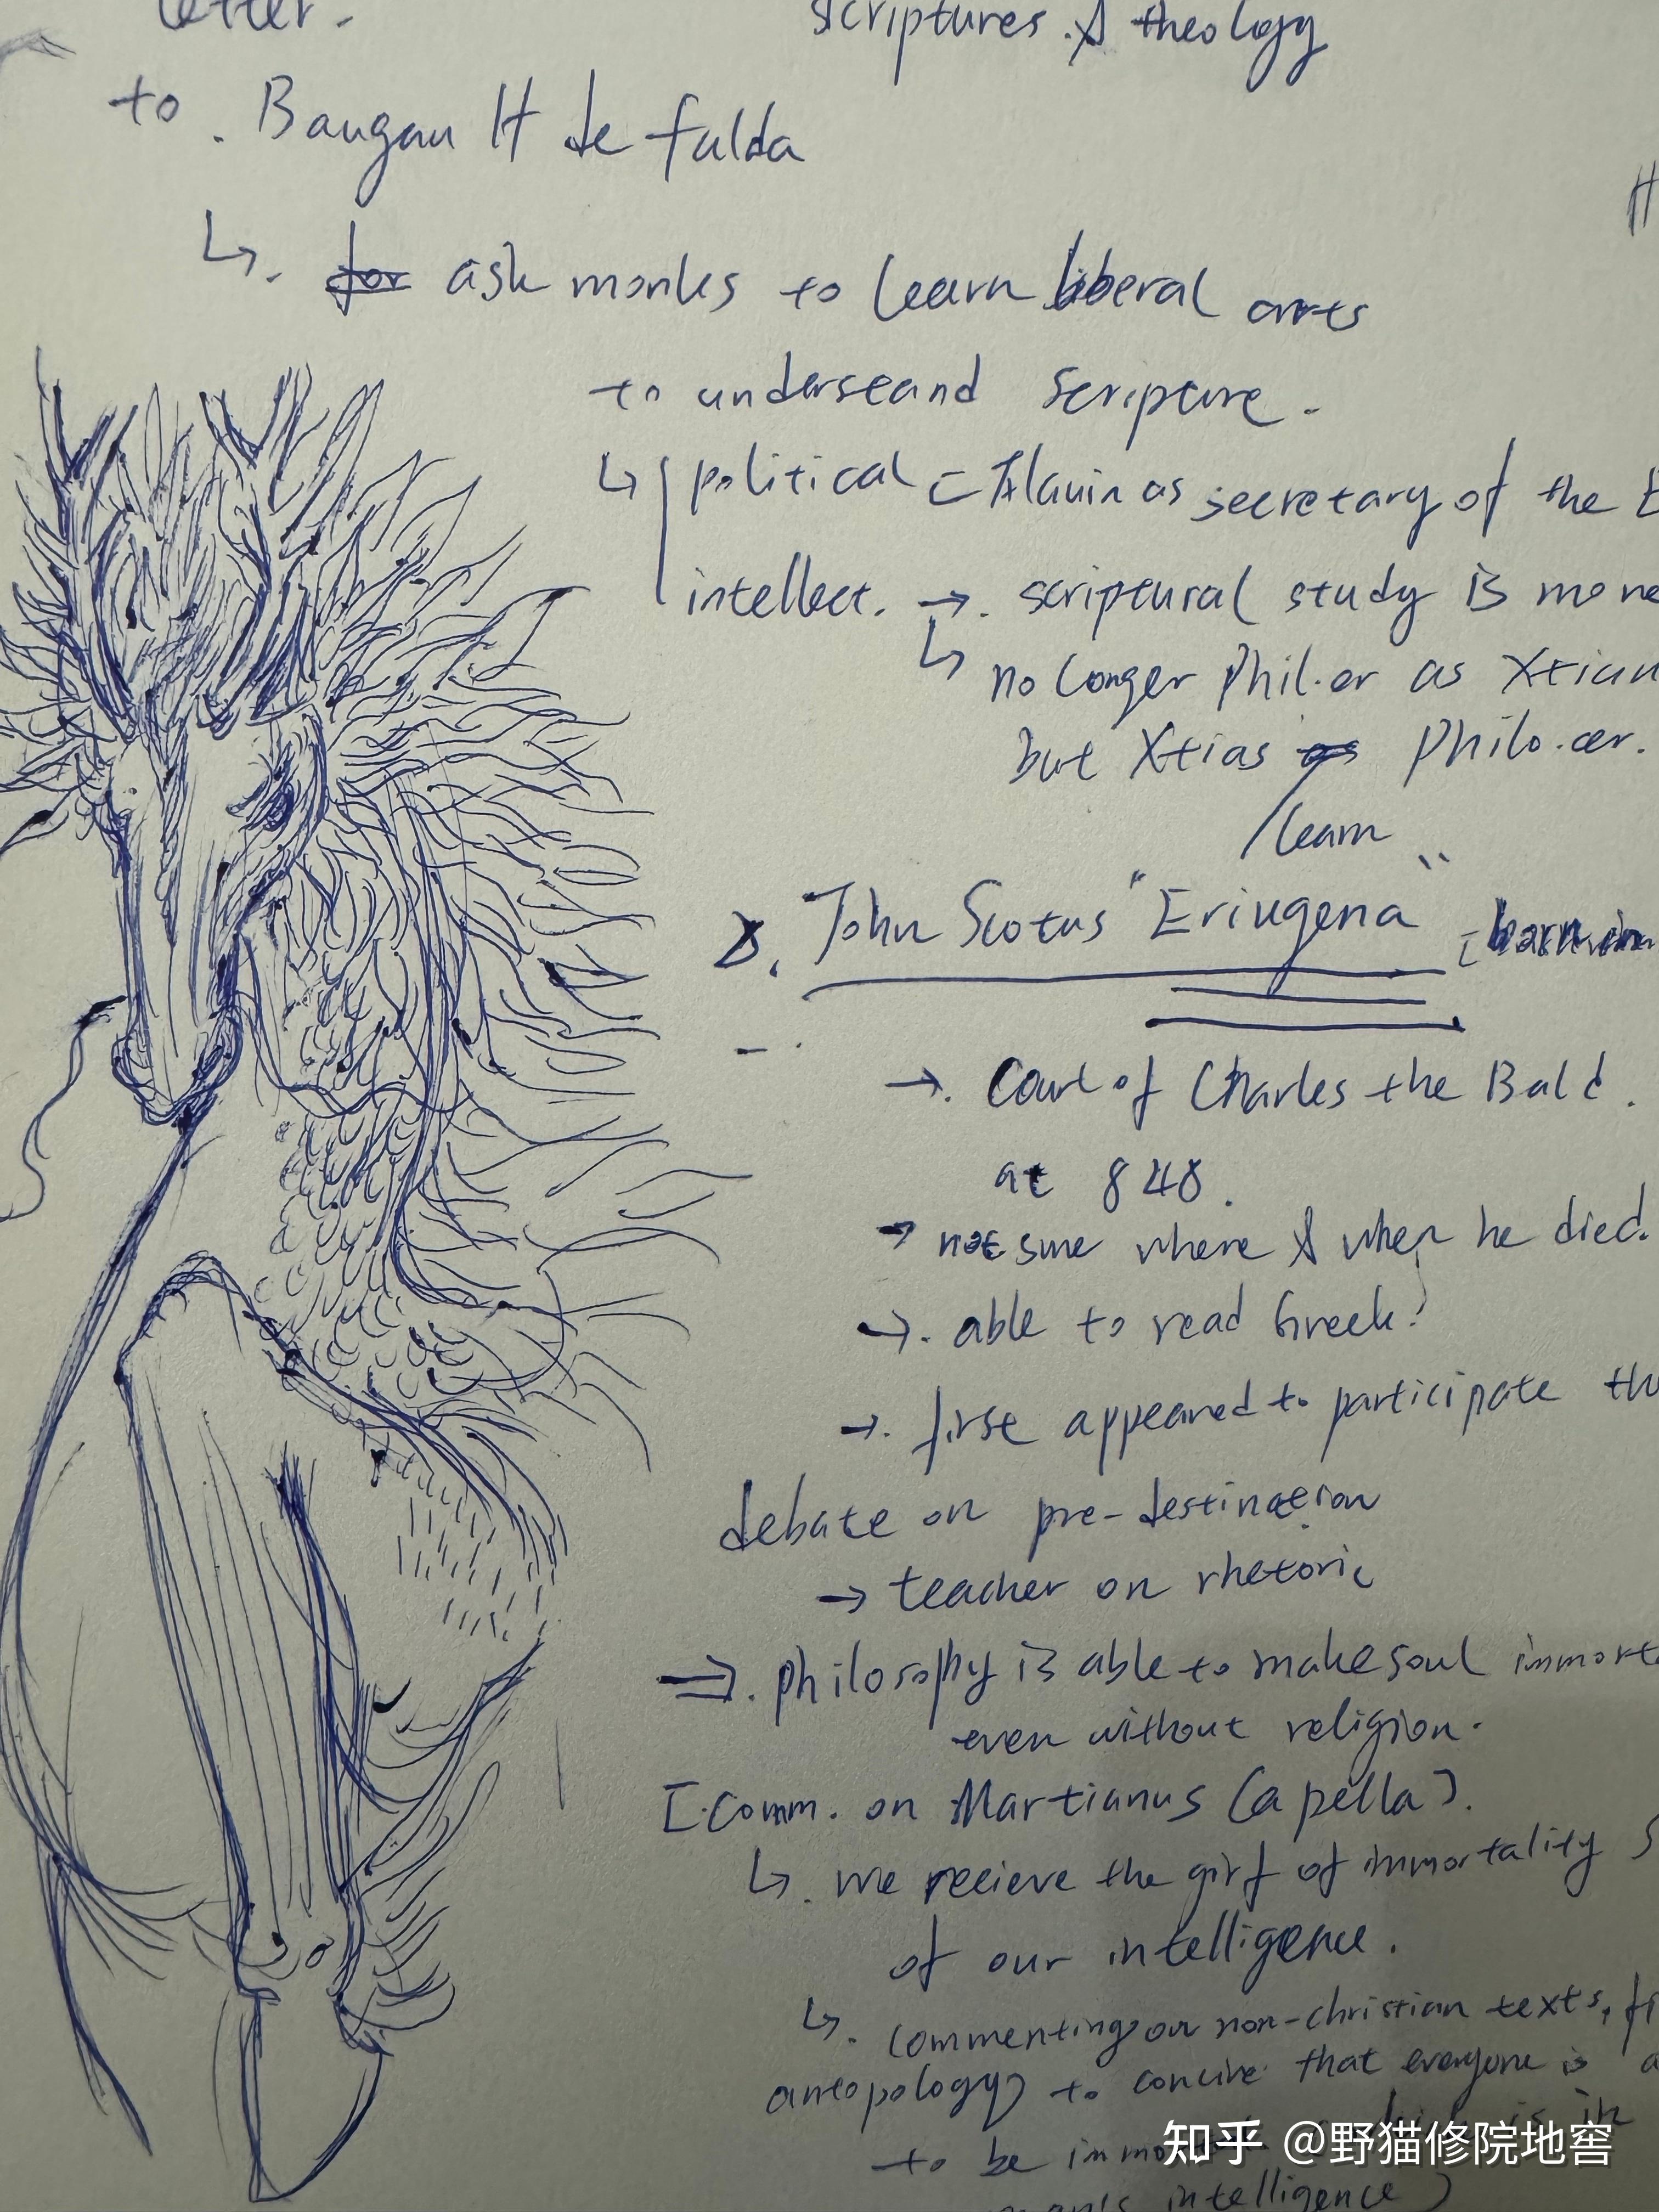 letter.
scriptures & theology
to. Baugau H de fulda
for ask monks to learn liberal arts
to understand scripture.
political
as secretary of the
intellect. → scriptural study is more
no longer phil.er as Xtian
but Xtias as philo.er.
learn
John Scotus "Eriugena"
→. Court of Charles the Bald.
at 848.
→ not sure where & when he died.
→. able to read Greek.
→. first appeared to participate
debate on pre-destination
→ teacher on rhetoric
⇒. philosophy is able to make soul
even without religion.
[comm. on Martianus Capella].
we recieve the gift of immortality
of our intelligence.
commenting on non-christian texts,
antopology) to concive that everyone is
to be
intelligence)
知乎 @野猫修院地窖